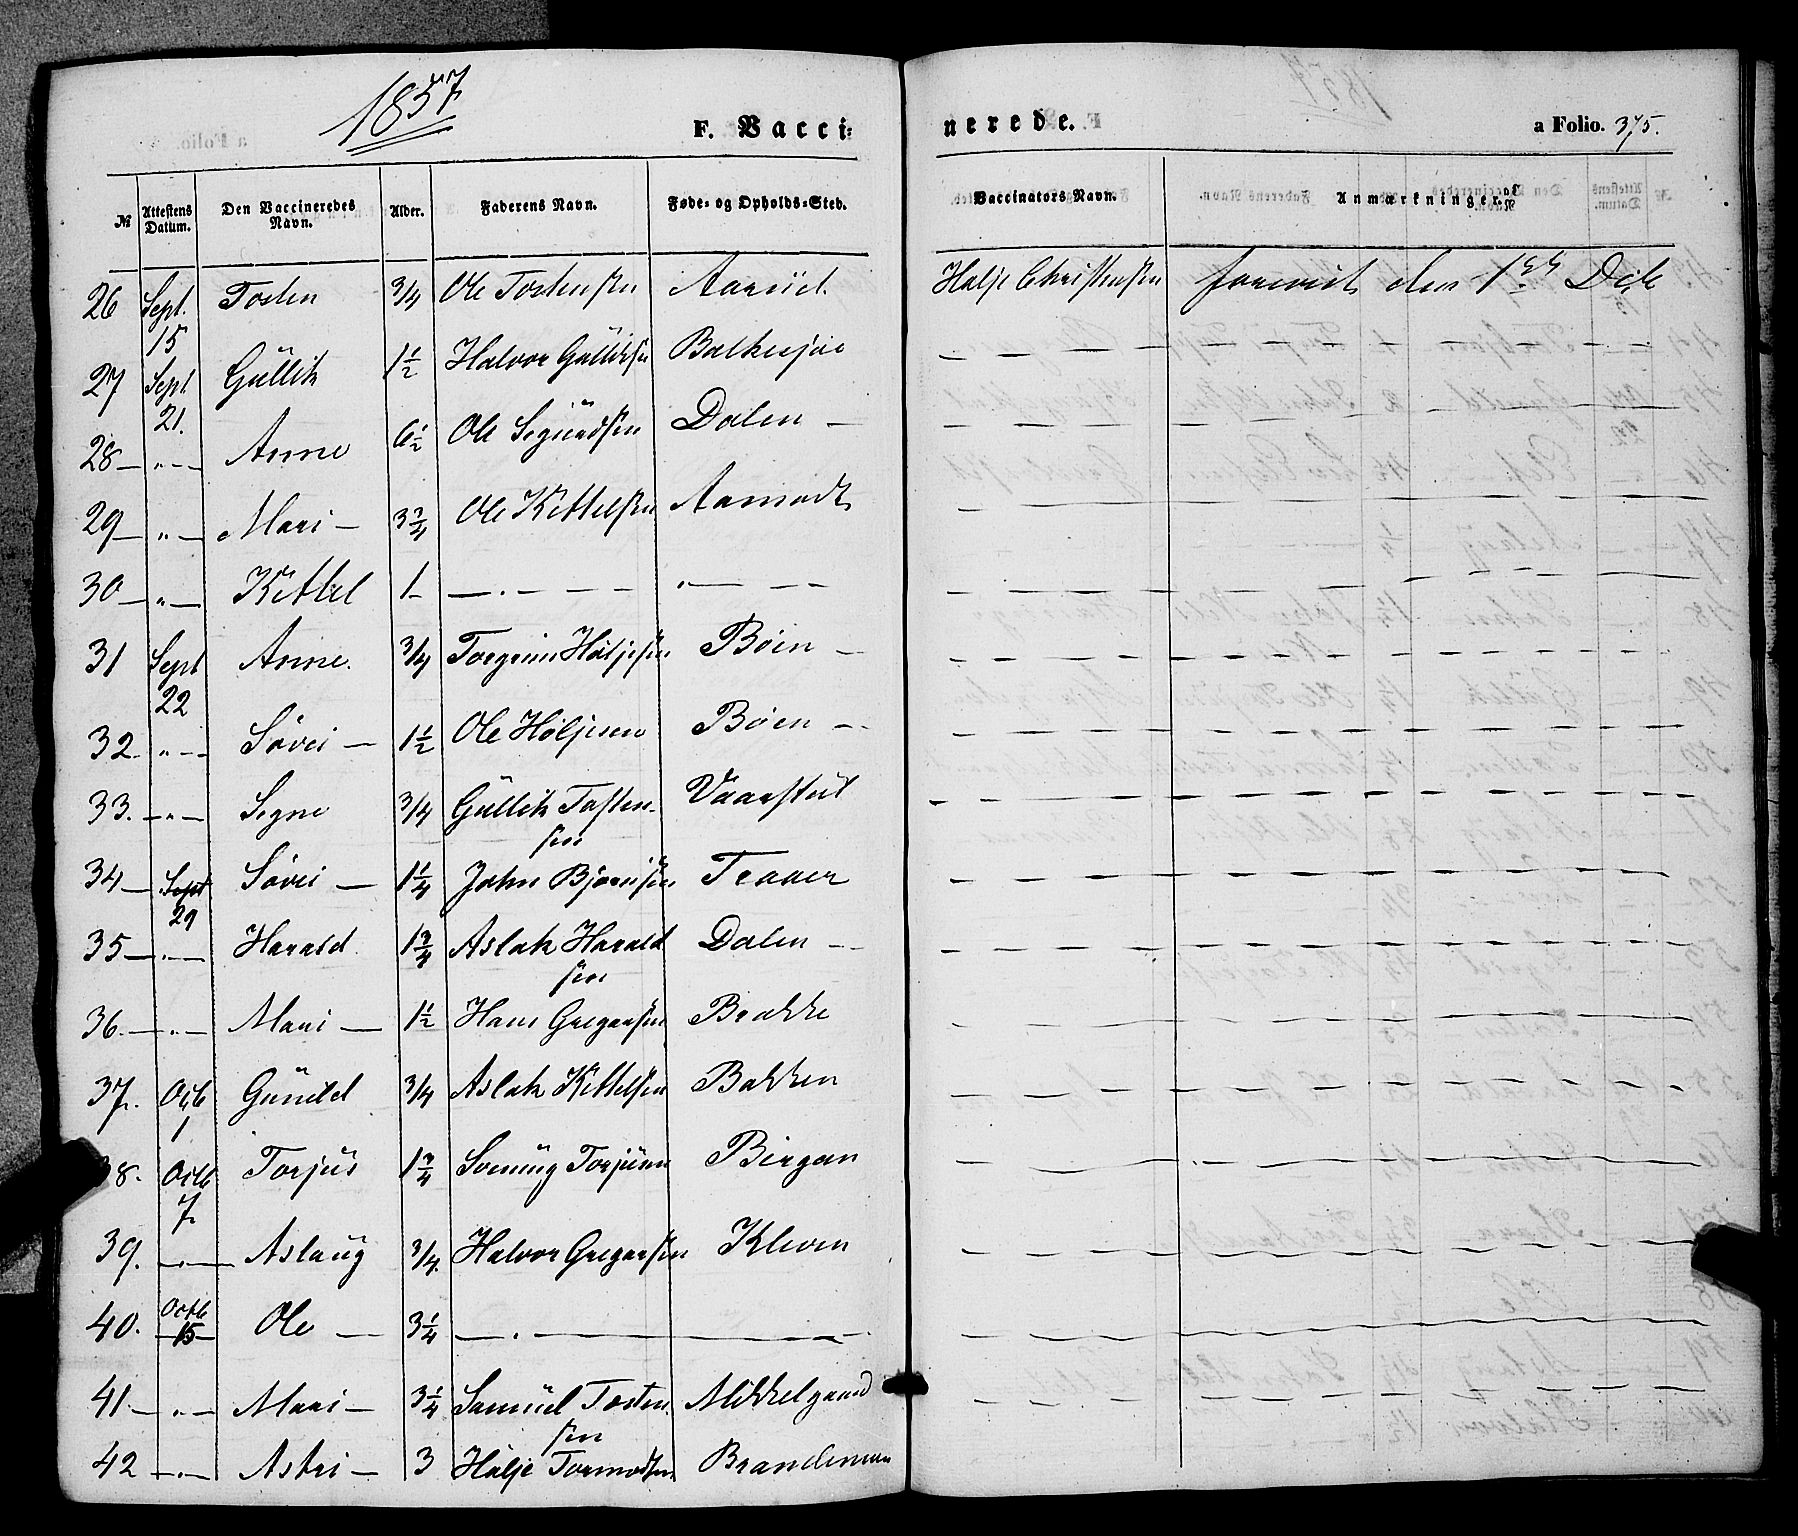 1857
F. Vacci=
nerede.
a Folio. 375.
№ Attestens Datum. Den Vaccineredes Navn. Alder. Faderens Navn. Føde= og Opholds=Sted. Vaccinators Navn. Anmærkninger.
26 Sept. 15 Tosten 3/4 Ole Tostensen Aasrüd Halje Christensen forevist den 1ste Dcb
27 Sept 21. Güllik 1 1/2 Halvor Gülliksen Bolkesjøe — — —
28 — " — Anne 6 1/2 Ole Sigürdsen Dalen — — — —
29 — " — Mari — 3 3/4 Ole Kittelsen Aamodt — — —
30 — " — Kittel 1 — — . — — — " — — — — —
31 Sept 22 Anne. 3/4 Torgrim Høljesen Bøen — — — —
32. " — Søvei — 1 1/2 Ole Høljesen Bøen — — — —
33. — " — Signe 3/4 Güllik Tosten- — — —
sen
34 — Sept 29 Søvei — 1 1/4 John Bjørnsen Traaer — — —
35 — " — Harald 1 3/4 Aslak Harald Dalen — — — —
sen
36. — " — Mari — 1 1/2 Hans Gregarsen Brække — — —
37. Octb 1 Günild 3/4 Aslak Kittelsen Bakken — — —
38. Octb 7. Torjüs 1 3/4 Torjüsen Bergan — — —
39. — " — Aslaüg 3/4. Halvor Gregarsen Kleven — — —
40. Octb 15 Ole — 3 1/4 — . — — — — — —
41. — " — Mari — 3 1/4 Samüel Tosten Mikkelgaard — — —
sen
42 — " — Astri — 3 Halje Tormodsen